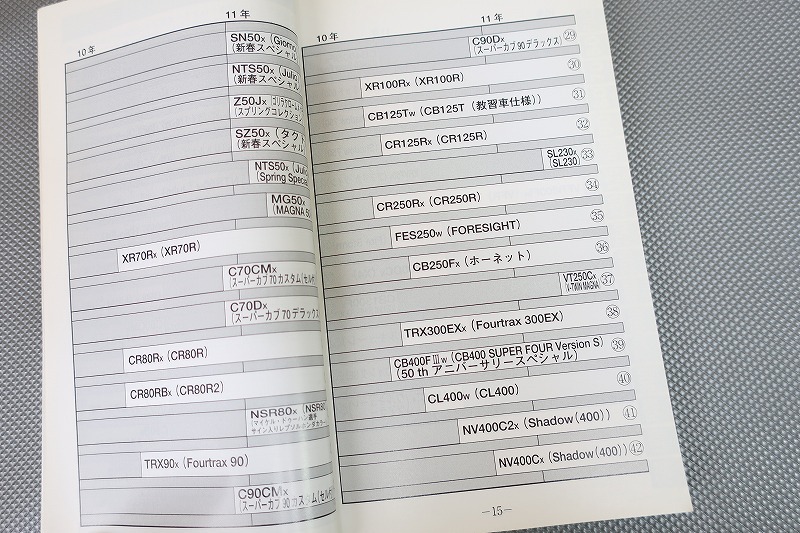 10年
11年
SN50x (Giorno
(新春スペシャル
NTS50x (Julio)
(新春スペシャル
Z50Jx
(スプリングコレクション
SZ50x (タクト
(新春スペシャル
NTS50x (Julio
(Spring Special
MG50x
(MAGNA 50
XR70Rx (XR70R)
C70CMx
(スーパーカブ70カスタム(セルナ
C70Dx
(スーパーカブ70デラックス)
CR80Rx (CR80R)
CR80RBx (CR80R2)
NSR80x (NSR80
(マイケル・ドゥーハン選手
サイン入りレプソルホンダカラー
TRX90x (Fourtrax 90)
C90CMx
(スーパーカブ90カスタム(セル
10年
11年
C90Dx
(スーパーカブ90デラックス)
㉙
XR100Rx (XR100R)
㉚
CB125Tw (CB125T (教習車仕様))
㉛
CR125Rx (CR125R)
㉜
SL230x
(SL230)
㉝
CR250Rx (CR250R)
㉞
FES250w (FORESIGHT)
㉟
CB250Fx (ホーネット)
㊱
VT250Cx
(V-TWIN MAGNA)
㊲
TRX300EXx (Fourtrax 300EX)
㊳
CB400FⅢw (CB400 SUPER FOUR Version S)
(50 th アニバーサリースペシャル)
㊴
CL400w (CL400)
㊵
NV400C2x (Shadow(400))
㊶
NV400Cx (Shadow(400))
㊷
—15—